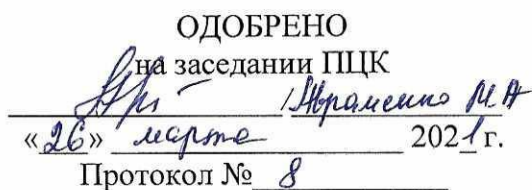 ОДОБРЕНО
на заседании ПЦК
/Авраменко М.А
«26» марта 2021 г.
Протокол № 8